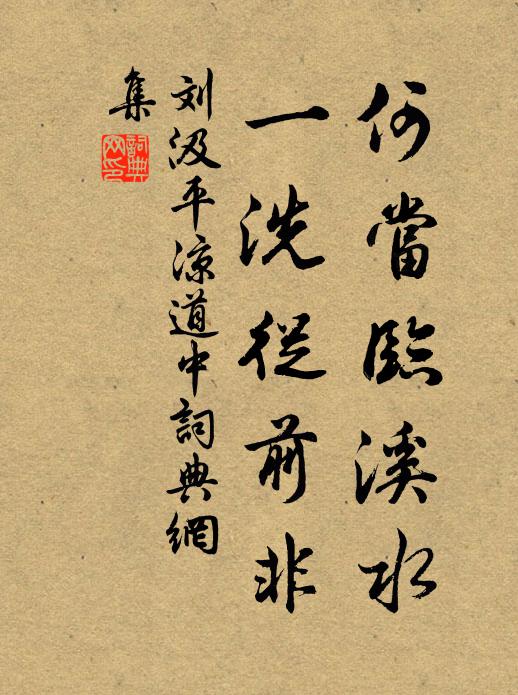 何當臨溪水
一洗從前非
刘汲平凉道中詞典網
集
詞典網印